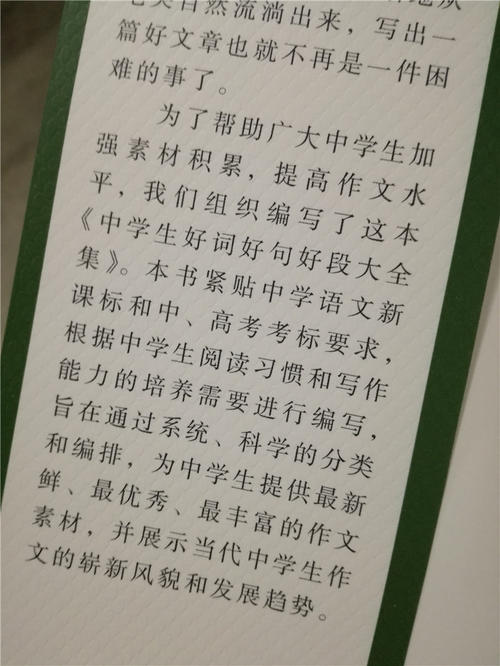 自然流淌出来，写出一
篇好文章也就不再是一件困
难的事了。
为了帮助广大中学生加
强素材积累，提高作文水
平，我们组织编写了这本
《中学生好词好句好段大全
集》。本书紧贴中学语文新
课标和中、高考考标要求，
根据中学生阅读习惯和写作
能力的培养需要进行编写，
旨在通过系统、科学的分类
和编排，为中学生提供最新
鲜、最优秀、最丰富的作文
素材，并展示当代中学生作
文的崭新风貌和发展趋势。